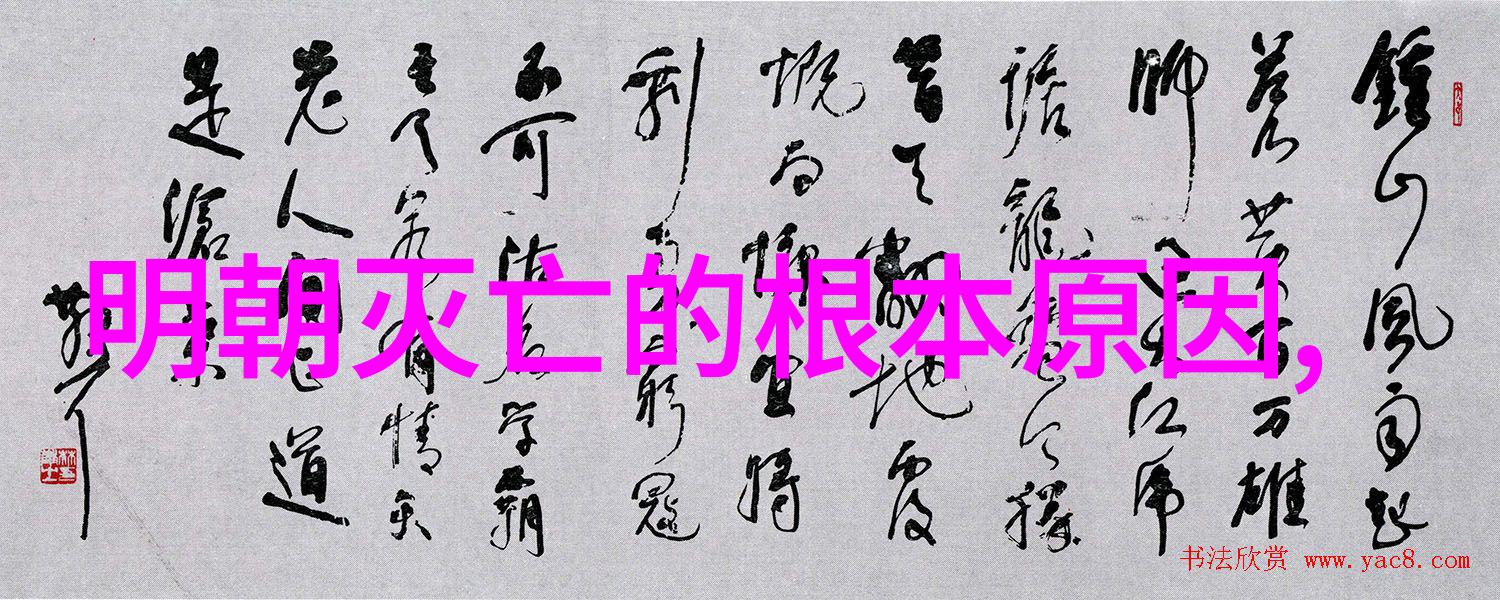 鍾山風雨起
蒼黄百万雄
師过大江虎
踞龍盤今勝
昔天翻地覆
慨而慷宜將
剩勇追窮寇
不可沽名学霸
王天若有情天亦
老人间正道
是滄桑
明朝灭亡的根本原因,
书法欣赏 www.yac8.com